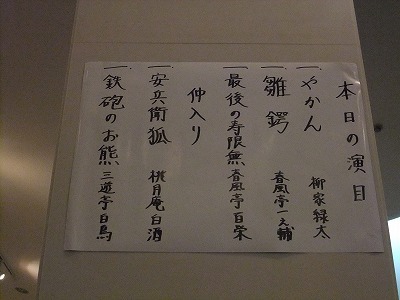 本日の演目
一.やかん 柳家緑太
一.雛鍔 春風亭一之輔
一.最後の寿限無 春風亭百栄
仲入り
一.安兵衛狐 桃月庵白酒
一.鉄砲のお熊 三遊亭白鳥